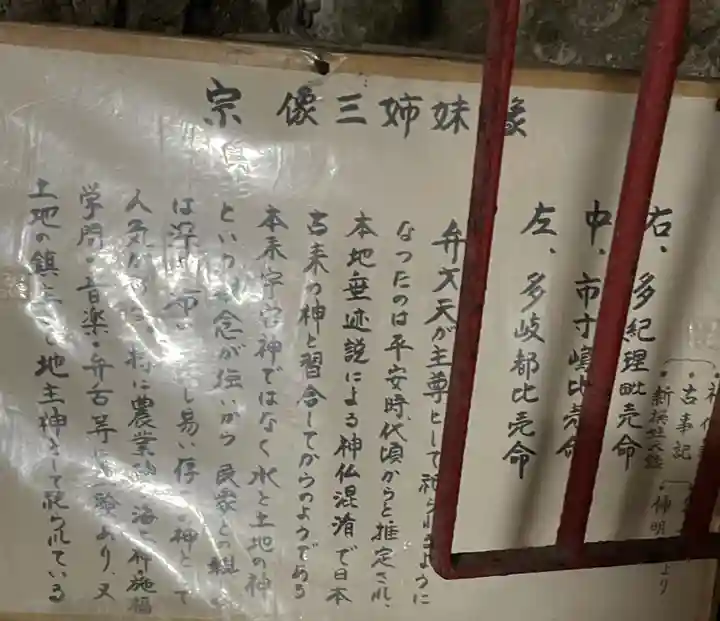 宗像三姉妹像
右、多紀理毗売命
中、市寸嶋比売命
左、多岐都比売命
古事記
新撰姓氏録
神明 より
弁才天が主尊として祀られるように
なったのは平安時代頃からと推定され、
本地垂迹説による神仏混淆で日本
古来の神と習合してからのようである
本来宇宙神ではなく水と土地の神
という 念が強いから民衆との親
は深 易い 神として
人気が 特に農業 海上 施福
学問・音楽・弁舌等 験あり、又
土地の鎮主 地主神として祀られている